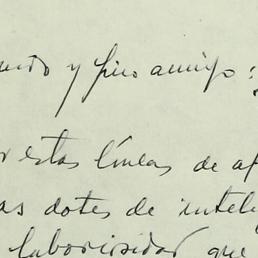 y fino amigo:
estas líneas de af
as dotes de inteli
laboriosidad que